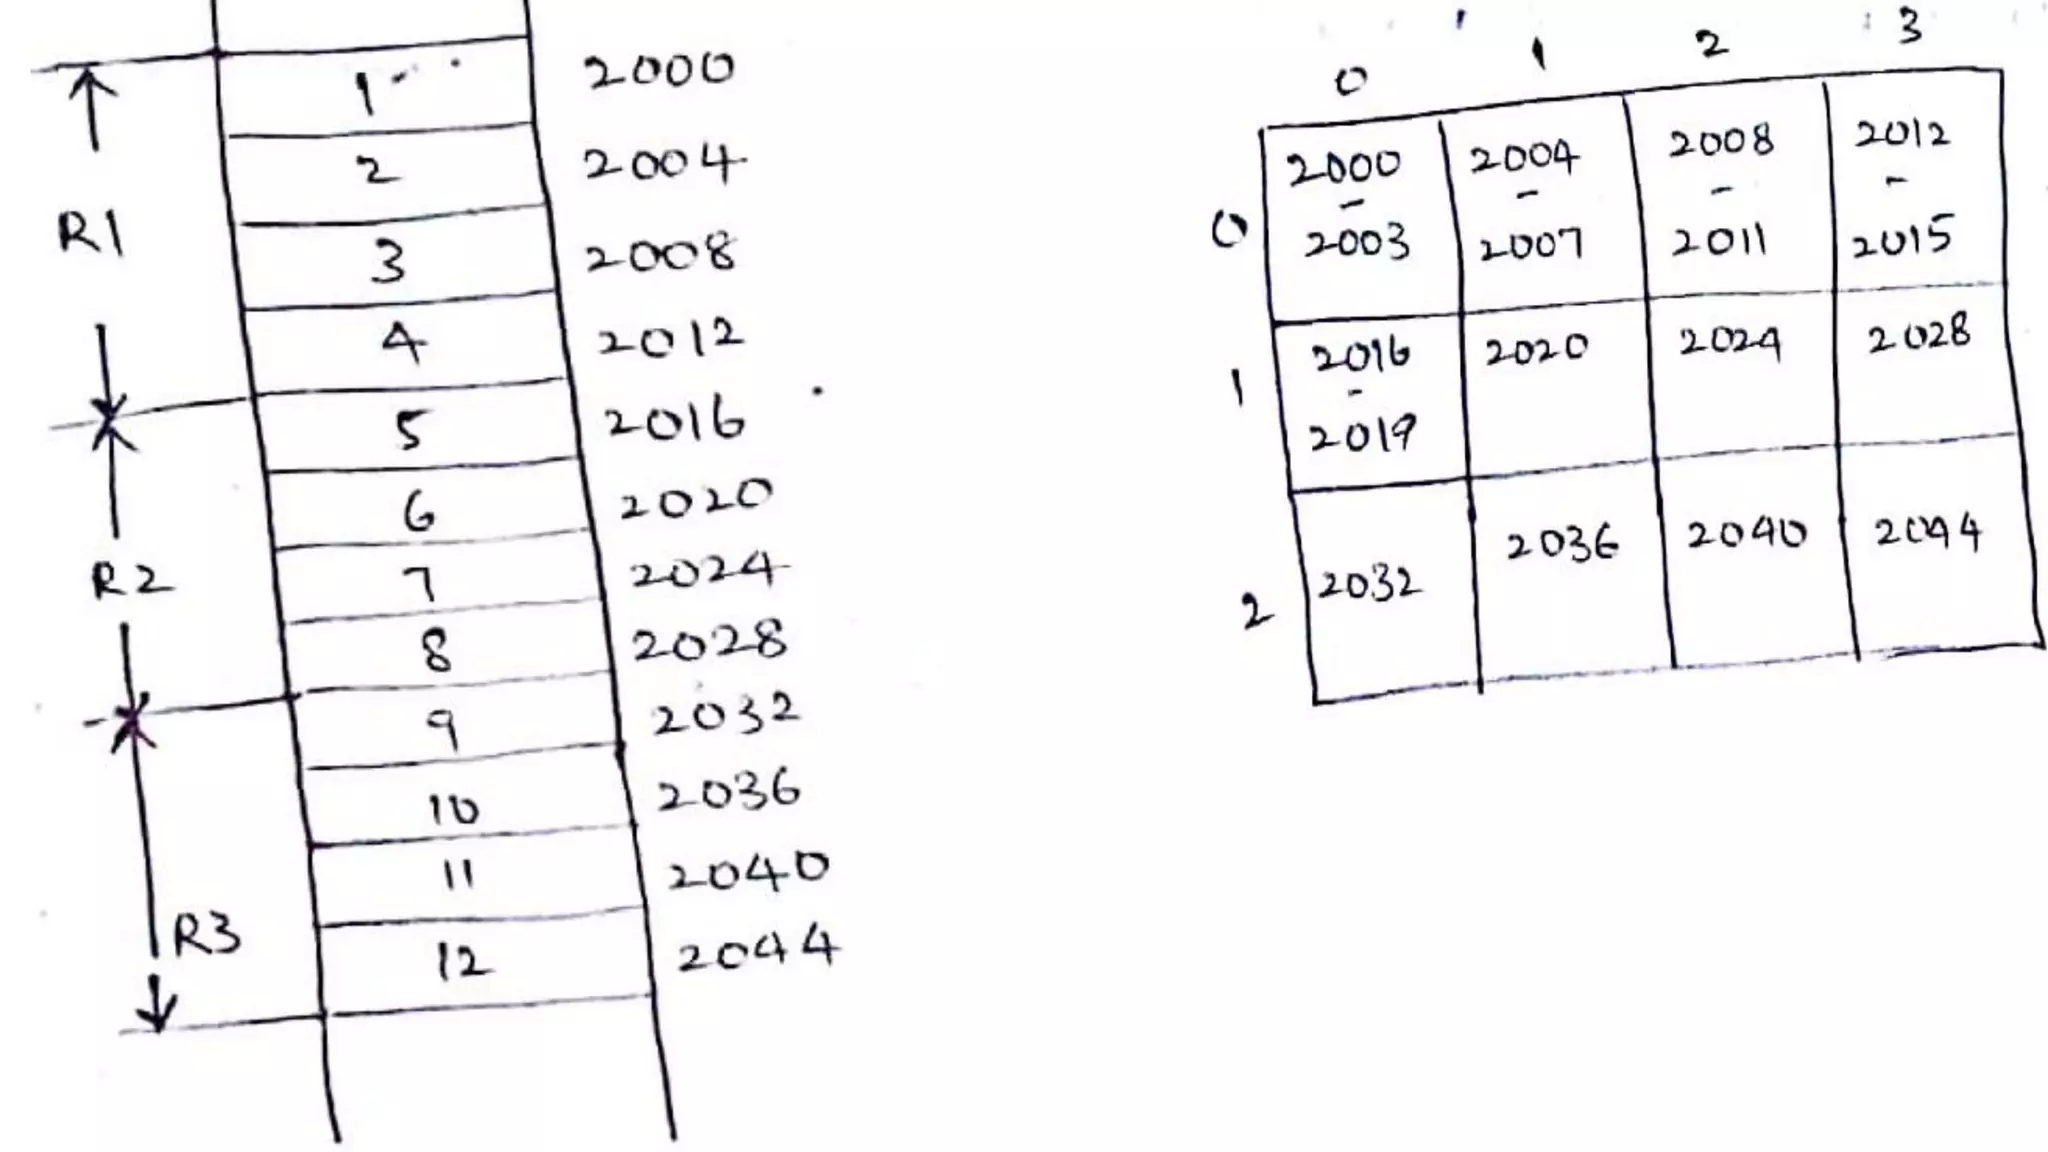 1 2000
2 2004
R1
3 2008
4 2012
5 2016
6 2020
R2
7 2024
8 2028
9 2032
10 2036
11 2040
R3
12 2044
0 1 2 3
0
2000 2004 2008 2012
- - - -
2003 2007 2011 2015
1
2016 2020 2024 2028
-
2019
2
2032 2036 2040 2044